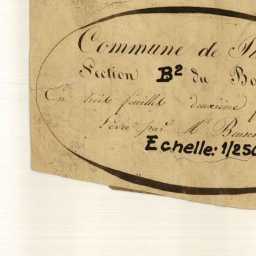 Commune de Th
Section B² du Bo
En huit feuilles deuxième
Levée par Mr
Echelle: 1/250